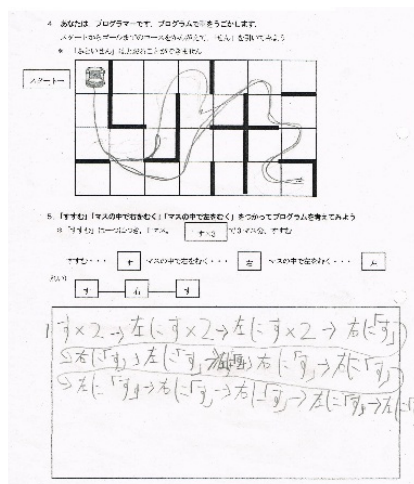 4. あなたは プログラマーです。プログラムで車をうごかします。
スタートからゴールまでのコースをかんがえて、「せん」を引いてみよう
※ 「ふといせん」は とおることができません
スタート→
5. 「すすむ」「マスの中で右をむく」「マスの中で左をむく」をつかってプログラムを考えてみよう
※ 「すすむ」は一つにつき、1マス。 す×3 で3マス分、すすむ
すすむ・・・ す マスの中で右をむく・・・ 右 マスの中で左をむく・・・ 左
れい) す 右 す
す×2→左に す×2→左に す×2→右に「す」
右に「す」 左に「す」 右に「す」→右に「す」
左に「す」→右に「す」→右に「す」→左に「す」→左に